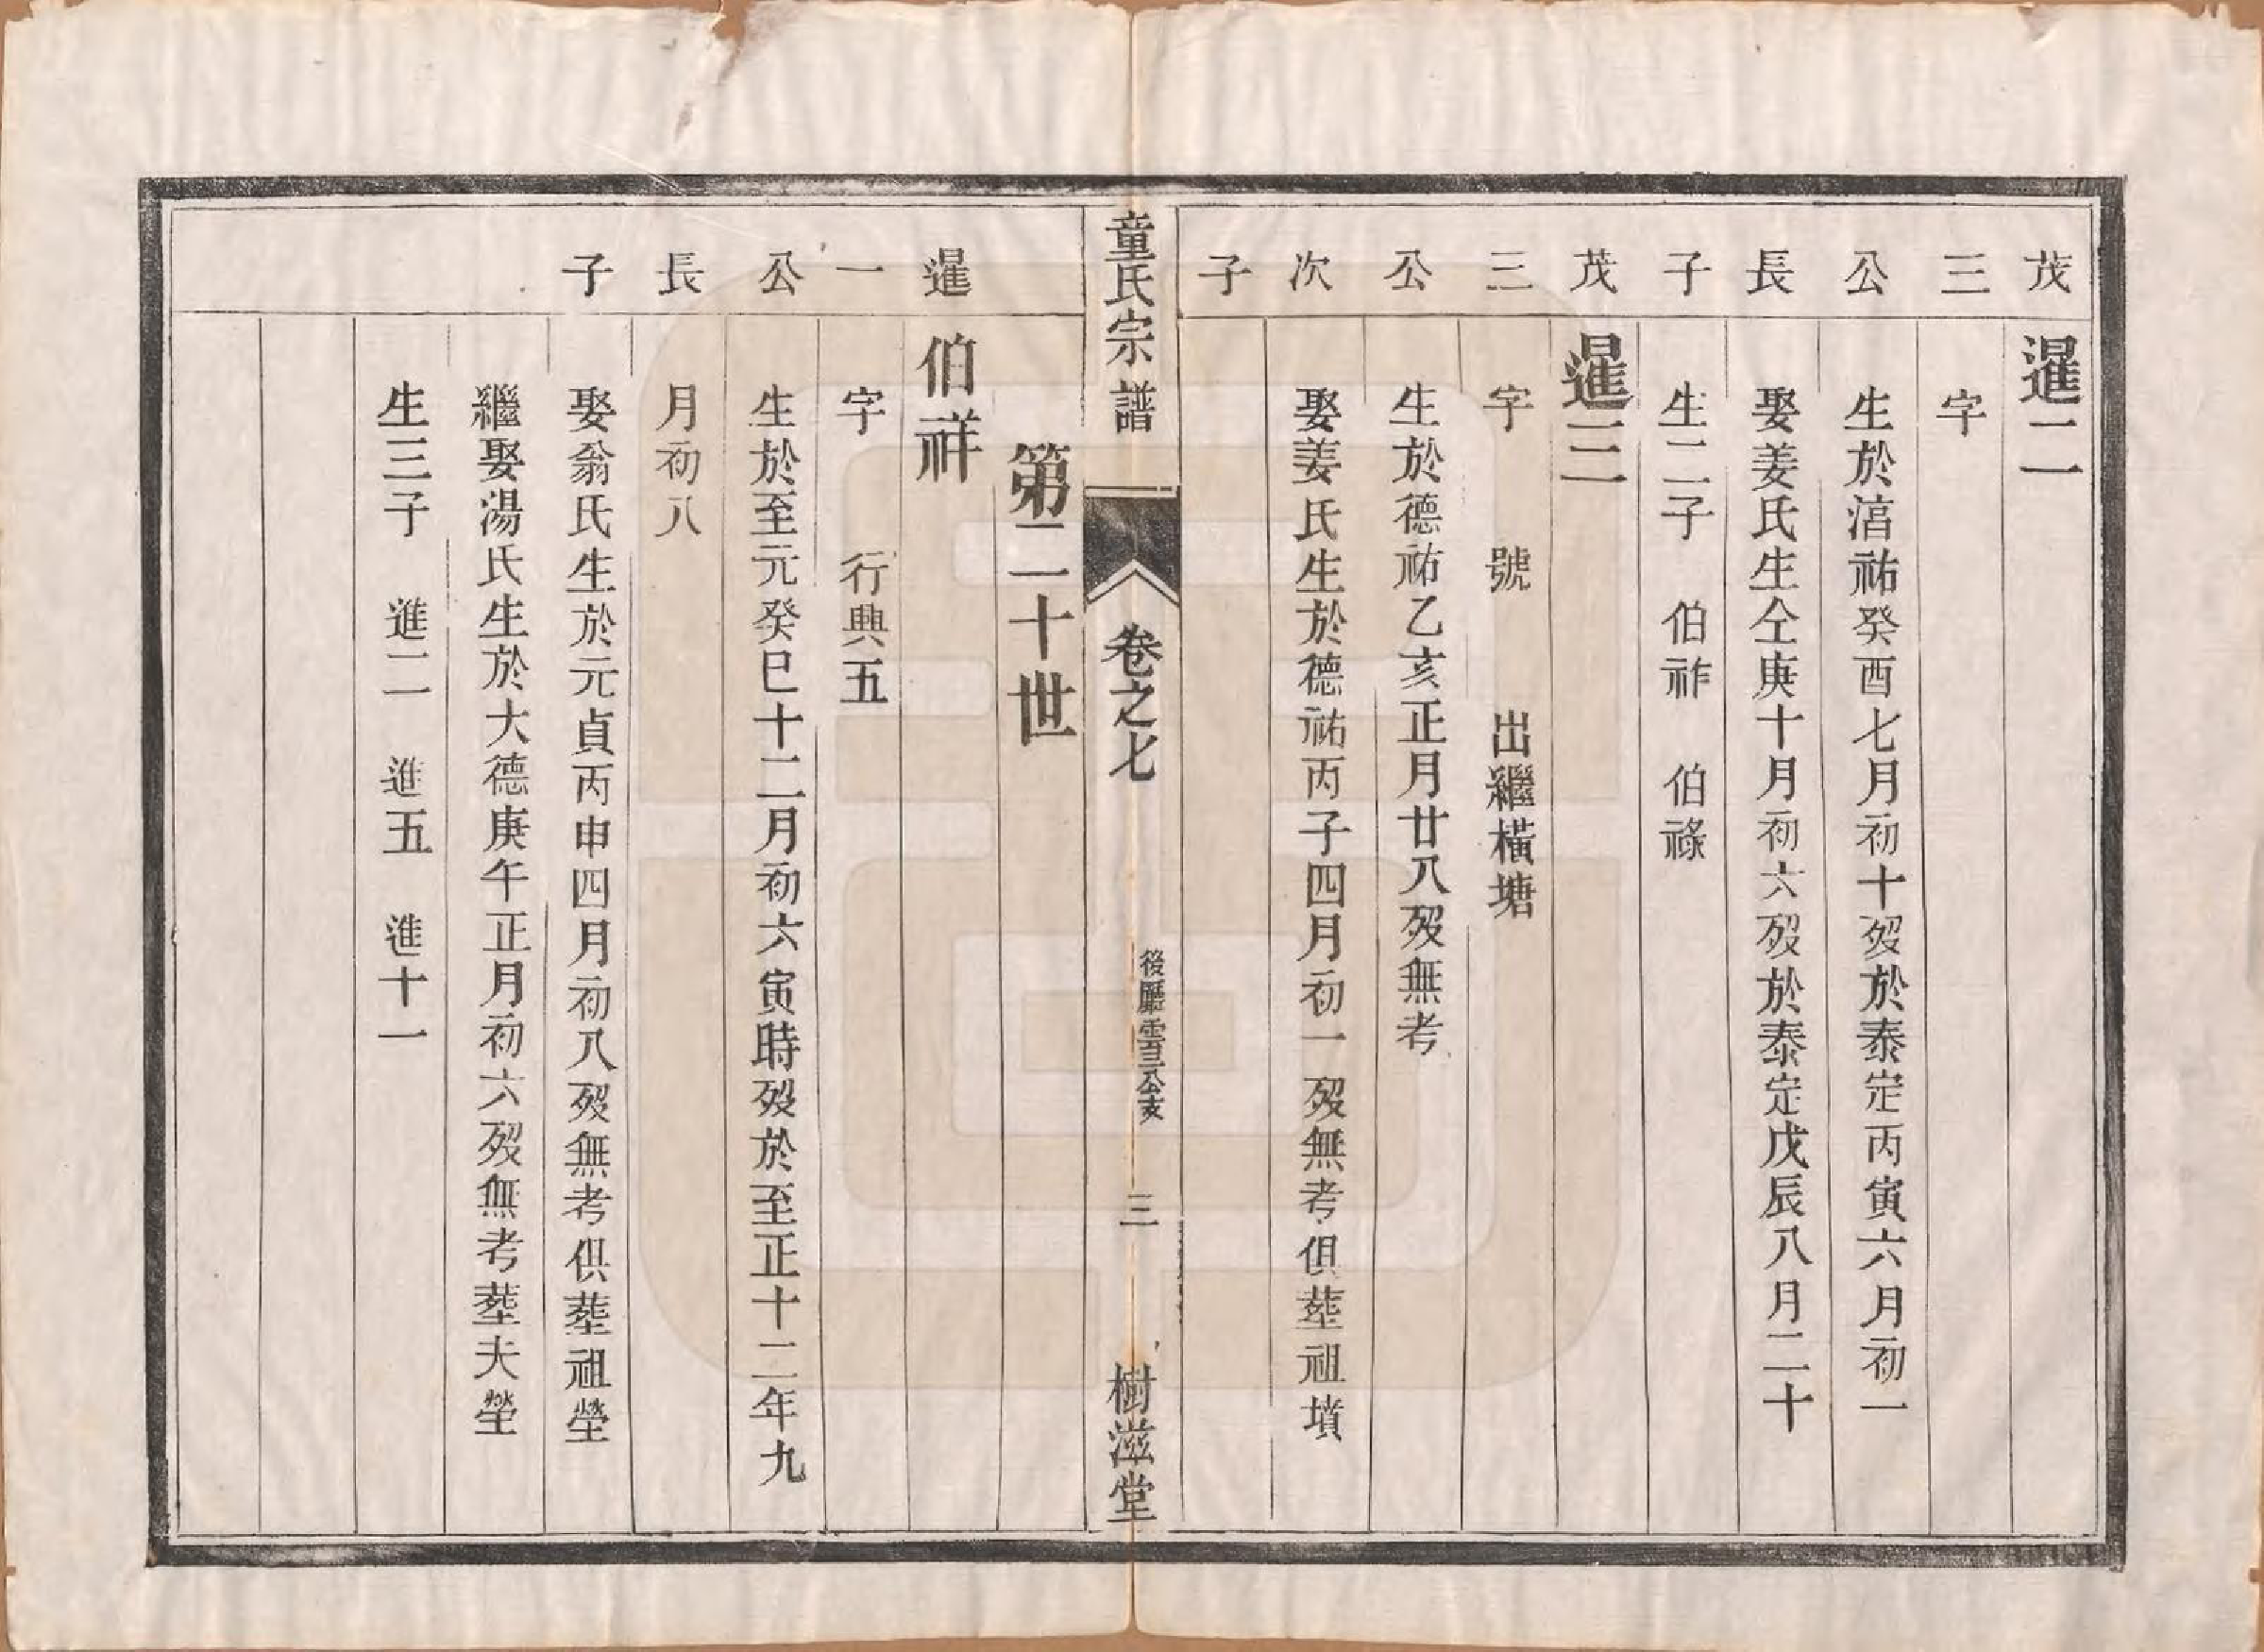 茂三公長子
暹二
字
生於湻祐癸酉七月初十歿於泰定丙寅六月初一
娶姜氏生仝庚十月初六歿於泰定戊辰八月二十
生二子 伯祚 伯祿
茂三公次子
暹三
字 號 出繼橫塘
生於德祐乙亥正月廿八歿無考
娶姜氏生於德祐丙子四月初一歿無考俱塟祖墳
童氏宗譜 卷之七
後廳雲百三公支
三
樹滋堂
第二十世
暹一公長子
伯祥
字 行興五
生於至元癸巳十二月初六寅時歿於至正十二年九
月初八
娶翁氏生於元貞丙申四月初八歿無考俱塟祖塋
繼娶湯氏生於大德庚午正月初六歿無考塟夫塋
生三子 進二 進五 進十一